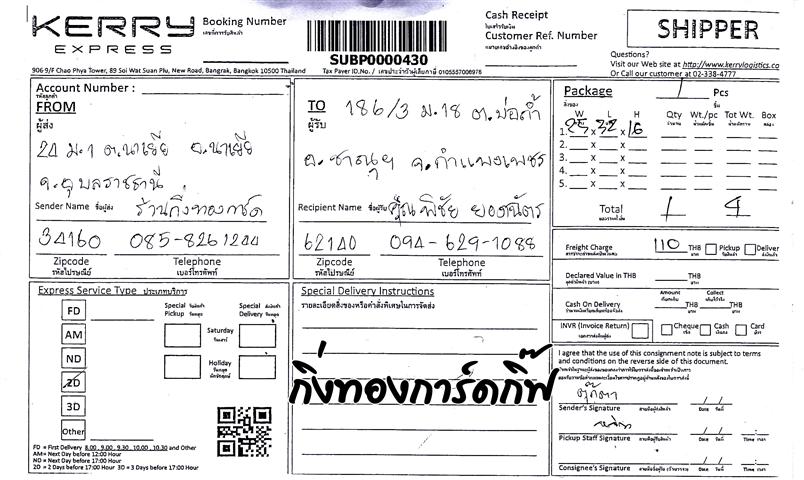 KERRY
EXPRESS
Booking Number
SUBP0000430
Cash Receipt
Customer Ref. Number
SHIPPER
Questions?
Visit our Web site at http://www.kerrylogistics.co
Or Call our customer at 02-338-4777
906 9/F Chao Phya Tower, 89 Soi Wat Suan Plu, New Road, Bangrak, Bangkok 10500 Thailand
Tax Payer ID.No./ เลขประจำตัวผู้เสียภาษี 0105557008978
Account Number :
FROM
ผู้ส่ง
24 ม.1 ต.นาเยีย อ.นาเยีย
จ.อุบลราชธานี
Sender Name ชื่อผู้ส่ง ร้านกิ่งทองการ์ด
34160 085-8261244
Zipcode Telephone
รหัสไปรษณีย์ เบอร์โทรศัพท์
TO 186/3 ม.18 ต.บ่อถ้ำ
ผู้รับ
อ.ขาณุฯ จ.กำแพงเพชร
Recipient Name ชื่อผู้รับ คุณพิชัย ยอดฉัตร
62140 094-629-1088
Zipcode Telephone
รหัสไปรษณีย์ เบอร์โทรศัพท์
Package 1 Pcs
W L H Qty Wt./pc Tot Wt. Box
1. 25 x 32 x 16
2. x x
3. x x
4. x x
5. x x
Total 1 4
Freight Charge 110 THB Pickup Deliver
Declared Value in THB
Amount Collect
Cash On Delivery THB THB
INVR (Invoice Return) Cheque Cash Card
I agree that the use of this consignment note is subject to terms
and conditions on the reverse side of this document.
ตุ๊กตา
Sender's Signature Date Time
Pickup Staff Signature Date Time
Consignee's Signature Date Time
Express Service Type ประเภทบริการ
FD
AM
ND
2D
3D
Other
Special Pickup
Special Delivery
Saturday
วันเสาร์
Holiday
วันหยุด
Special Delivery Instructions
รายละเอียดสิ่งของหรือคำสั่งพิเศษในการจัดส่ง
กิ่งทองการ์ดกิ๊ฟ
FD = First Delivery 8.00, 9.00, 9.30, 10.00, 10.30 and Other
AM= Next Day before 12:00 Hour
ND = Next Day before 17:00 Hour
2D = 2 Days before 17:00 Hour 3D = 3 Days before 17:00 Hour